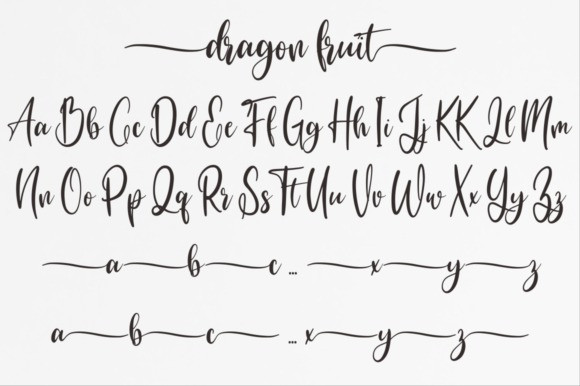 dragon fruit
Aa Bb Cc Dd Ee Ff Gg Hh Ii Jj KK Ll Mm
Nn Oo Pp Qq Rr Ss Tt Uu Vv Ww Xx Yy Zz
a b c ... x y z
a b c ... x y z